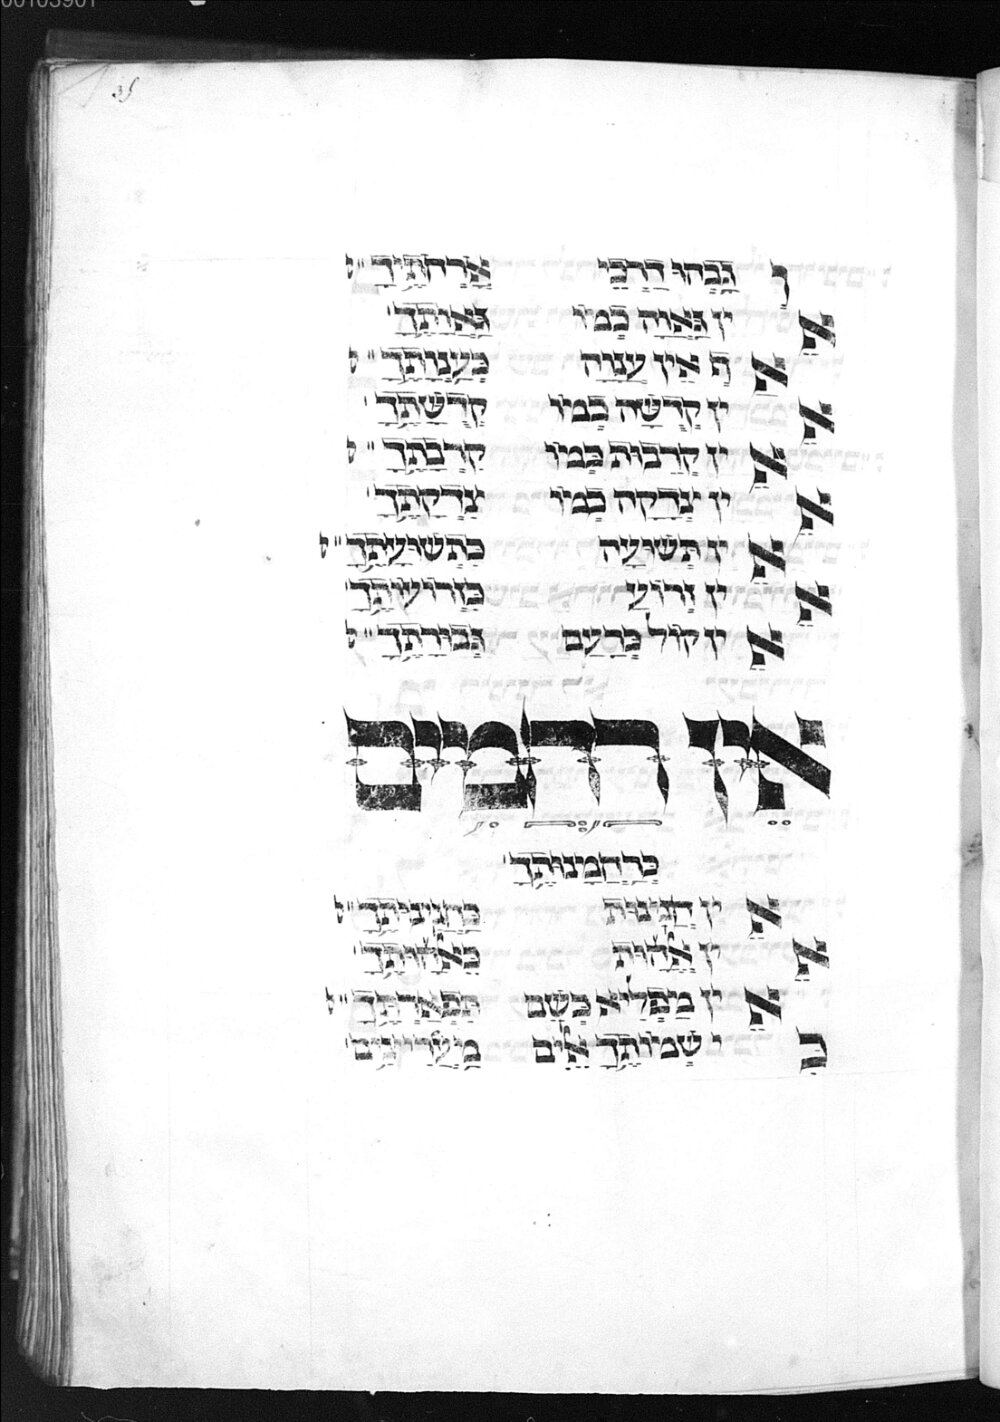 00103901
35
וְ גָבְהוּ דַרְכֵי אָרְחֹתֶיךָ
אֵין גַּאֲוָה כְּמוֹ גַּאֲוָתָךְ
אַף אֵין עֲנָוָה כְּעַנְוָתָךְ
אֵין קְדֻשָּׁה כְּמוֹ קְדֻשָּׁתָךְ
אֵין קְרֵבוּת כְּמוֹ קִרְבָתָךְ
אֵין צְדָקָה כְּמוֹ צִדְקָתָךְ
אֵין תְּשׁוּעָה כִּתְשׁוּעָתָךְ
אֵין זְרוֹעַ כִּזְרוֹעֹתֶיךָ
אֵין קוֹל כְּרַעַם גְּבוּרָתָךְ
אֵין רַחֲמִים
כְּרַחֲמָנוּתָךְ
אֵין חֲנִינוּת כַּחֲנִינוּתָךְ
אֵין אֱלָֹהוּת כֵּאלָֹהוּתָךְ
אֵין מַפְלִיא כְּשֵׁם תִּפְאַרְתָּךְ
כִּי שְׁמוֹתֶיךָ